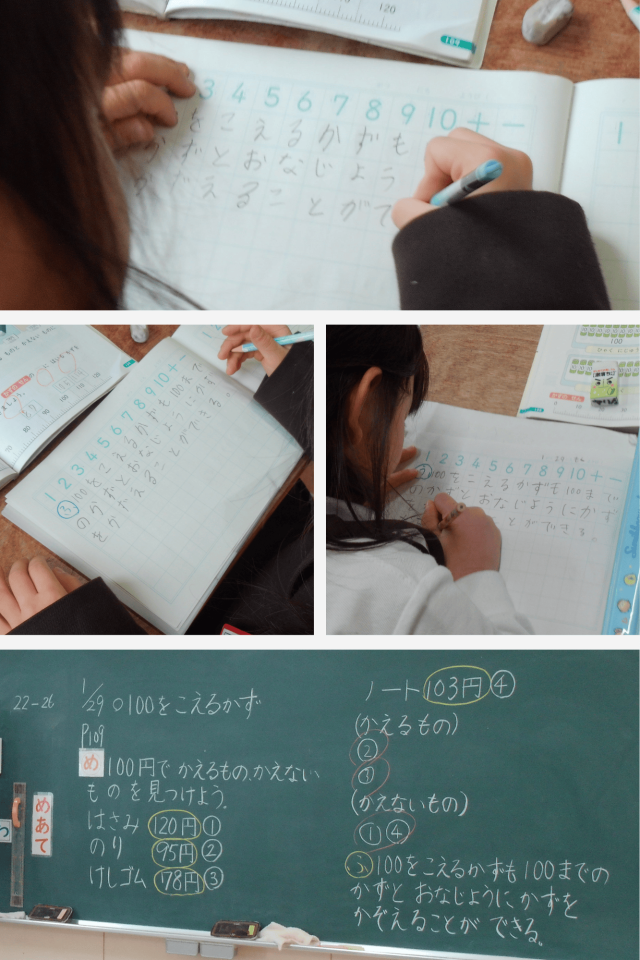 120
109
3 4 5 6 7 8 9 10 + −
をこえるかずも
かずとおなじよう
かぞえることがで
1
1 2 3 4 5 6 7 8 9 10 + −
ふ 100をこえるかずも100まで
のかずとおなじようにかず
をかぞえることができる。
100
1 2 3 4 5 6 7 8 9 10 + −
ふ 100をこえるかずも100まで
のかずとおなじようにかず
とができる。
22-26
1/29 ○100をこえるかず
P109
め 100円でかえるもの、かえない
ものを見つけよう。
はさみ 120円 ①
のり 95円 ②
けしゴム 78円 ③
めあて
ノート 103円 ④
(かえるもの)
②
③
(かえないもの)
① ④
ふ 100をこえるかずも100までの
かずと おなじように、かずを
かぞえることが できる。